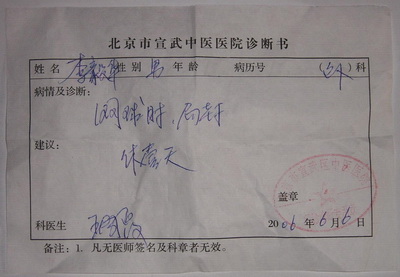 北京市宣武中医医院诊断书
姓名 李 性别 男 年龄 病历号 科
病情及诊断：
网球肘，局封
建议：
休壹天
盖章
科医生 2006年6月6日
备注：1. 凡无医师签名及科章者无效。